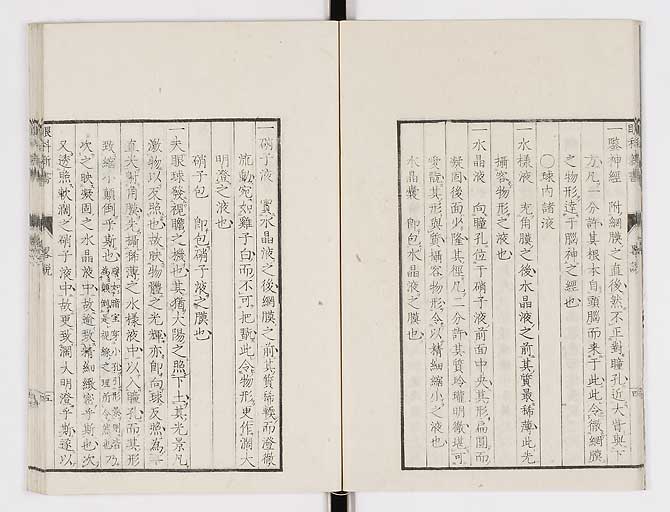 一鑒神經　附網膜之直後然不正對瞳孔近大眥與下
方凡二分許其根本自頭腦而来于此此令徹網膜
之物形達于腦神之經也
〇球内諸液
一水樣液　充角膜之後水晶液之前其質最稀薄此光
攝客物形之液也
一水晶液　向瞳孔位于硝子液前面中央其形扁圓而
凝固後面少隆其徑凡二分許其質玲瓏明徹堪可
愛翫其形與質攝容物形令以精細縮小之液也
水晶囊　即包水晶液之膜也
眼科新書
四
一硝子液　實水晶液之後網膜之前其質稀輭而澄徹
流動宛如雞子白而不可把翫此令物形更作濶大
明澄之液也
硝子包　即包硝子液之膜也
一夫眼球發視瞻之機也其猶太陽之照下土其光景凡
激物以反照也故映物體之光輝亦即向球反照為一
直夫射角膜先攝稀薄之水樣液中以入瞳孔而其形
致縮小顛倒乎斯也
次之映凝固之水晶液中故逾致精細緻密乎斯也次
又透照軟濶之硝子液中故更致濶大明澄乎斯遂以
眼科新書
五